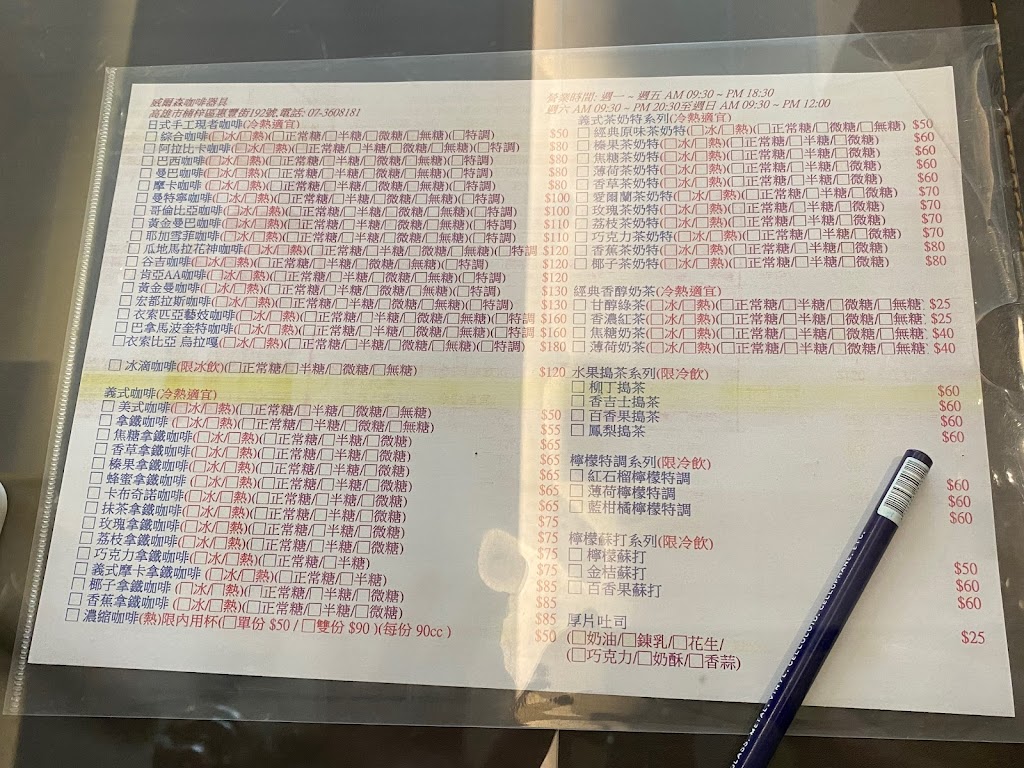 威爾森咖啡器具
高雄市楠梓區惠豐街192號,電話: 07-3608181
日式手工現煮咖啡(冷熱適宜)
□ 綜合咖啡(□冰/□熱)(□正常糖/□半糖/□微糖/□無糖)(□特調) $50
□ 阿拉比卡咖啡(□冰/□熱)(□正常糖/□半糖/□微糖/□無糖)(□特調) $80
□ 巴西咖啡(□冰/□熱)(□正常糖/□半糖/□微糖/□無糖)(□特調) $80
□ 曼巴咖啡(□冰/□熱)(□正常糖/□半糖/□微糖/□無糖)(□特調) $80
□ 摩卡咖啡(□冰/□熱)(□正常糖/□半糖/□微糖/□無糖)(□特調) $80
□ 曼特寧咖啡(□冰/□熱)(□正常糖/□半糖/□微糖/□無糖)(□特調) $100
□ 哥倫比亞咖啡(□冰/□熱)(□正常糖/□半糖/□微糖/□無糖)(□特調) $100
□ 黃金曼巴咖啡(□冰/□熱)(□正常糖/□半糖/□微糖/□無糖)(□特調) $110
□ 耶加雪菲咖啡(□冰/□熱)(□正常糖/□半糖/□微糖/□無糖)(□特調) $110
□ 瓜地馬拉花神咖啡(□冰/□熱)(□正常糖/□半糖/□微糖/□無糖)(□特調 $120
□ 谷吉咖啡(□冰/□熱)(□正常糖/□半糖/□微糖/□無糖)(□特調) $120
□ 肯亞AA咖啡(□冰/□熱)(□正常糖/□半糖/□微糖/□無糖)(□特調) $120
□ 黃金曼咖啡(□冰/□熱)(□正常糖/□半糖/□微糖/□無糖)(□特調) $130
□ 宏都拉斯咖啡(□冰/□熱)(□正常糖/□半糖/□微糖/□無糖)(□特調) $130
□ 衣索匹亞藝妓咖啡(□冰/□熱)(□正常糖/□半糖/□微糖/□無糖)(□特調) $160
□ 巴拿馬波奎特咖啡(□冰/□熱)(□正常糖/□半糖/□微糖/□無糖)(□特調) $160
□衣索比亞 烏拉嘎(□冰/□熱)(□正常糖/□半糖/□微糖/□無糖)(□特調) $180
□ 冰滴咖啡(限冰飲)(□正常糖/□半糖/□微糖/□無糖) $120
義式咖啡(冷熱適宜)
□ 美式咖啡(□冰/□熱)(□正常糖/□半糖/□微糖/□無糖) $50
□ 拿鐵咖啡(□冰/□熱)(□正常糖/□半糖/□微糖/□無糖) $55
□ 焦糖拿鐵咖啡(□冰/□熱)(□正常糖/□半糖/□微糖) $65
□ 香草拿鐵咖啡(□冰/□熱)(□正常糖/□半糖/□微糖) $65
□ 榛果拿鐵咖啡(□冰/□熱)(□正常糖/□半糖/□微糖) $65
□ 蜂蜜拿鐵咖啡(□冰/□熱)(□正常糖/□半糖/□微糖) $65
□ 卡布奇諾咖啡(□冰/□熱)(□正常糖/□半糖/□微糖) $65
□ 抹茶拿鐵咖啡(□冰/□熱)(□正常糖/□半糖/□微糖) $75
□ 玫瑰拿鐵咖啡(□冰/□熱)(□正常糖/□半糖/□微糖) $75
□ 荔枝拿鐵咖啡(□冰/□熱)(□正常糖/□半糖/□微糖) $75
□ 巧克力拿鐵咖啡(□冰/□熱)(□正常糖/□半糖) $75
□ 義式摩卡咖啡 (□冰/□熱)(□正常糖/□半糖) $85
□ 椰子拿鐵咖啡 (□冰/□熱)(□正常糖/□半糖/□微糖) $85
□ 香蕉拿鐵咖啡 (□冰/□熱)(□正常糖/□半糖/□微糖) $85
□ 濃縮咖啡(熱)限內用杯(□單份 $50 / □雙份 $90 )(每份 90cc ) $50
營業時間: 週一 ~ 週五 AM 09:30 ~ PM 18:30
週六 AM 09:30 ~ PM 20:30至週日 AM 09:30 ~ PM 12:00
義式茶奶特系列(冷熱適宜)
□ 經典原味茶奶特(□冰/□熱)(□正常糖/□半糖/□微糖/□無糖) $50
□ 榛果茶奶特(□冰/□熱)(□正常糖/□半糖/□微糖) $60
□ 焦糖茶奶特(□冰/□熱)(□正常糖/□半糖/□微糖) $60
□ 薄荷茶奶特(□冰/□熱)(□正常糖/□半糖/□微糖) $60
□ 香草茶奶特(□冰/□熱)(□正常糖/□半糖/□微糖) $60
□ 愛爾蘭茶奶特(□冰/□熱)(□正常糖/□半糖/□微糖) $70
□ 玫瑰茶奶特(□冰/□熱)(□正常糖/□半糖/□微糖) $70
□ 荔枝茶奶特(□冰/□熱)(□正常糖/□半糖/□微糖) $70
□ 巧克力茶奶特(□冰/□熱)(□正常糖/□半糖/□微糖) $70
□ 香蕉茶奶特(□冰/□熱)(□正常糖/□半糖/□微糖) $80
□ 椰子茶奶特(□冰/□熱)(□正常糖/□半糖/□微糖) $80
經典香醇奶茶(冷熱適宜)
□ 甘醇綠茶(□冰/□熱)(□正常糖/□半糖/□微糖/□無糖 $25
□ 香濃紅茶(□冰/□熱)(□正常糖/□半糖/□微糖/□無糖 $25
□ 焦糖奶茶(□冰/□熱)(□正常糖/□半糖/□微糖/□無糖 $40
□ 薄荷奶茶(□冰/□熱)(□正常糖/□半糖/□微糖/□無糖 $40
水果搗茶系列(限冷飲)
□ 柳丁搗茶 $60
□ 香吉士搗茶 $60
□ 百香果搗茶 $60
□ 鳳梨搗茶 $60
檸檬特調系列(限冷飲)
□ 紅石榴檸檬特調 $60
□ 薄荷檸檬特調 $60
□ 藍柑橘檸檬特調 $60
檸檬蘇打系列(限冷飲)
□ 檸檬蘇打 $50
□ 金桔蘇打 $60
□ 百香果蘇打 $60
厚片吐司
(□奶油/□鍊乳/□花生/ $25
(□巧克力/□奶酥/□香蒜)